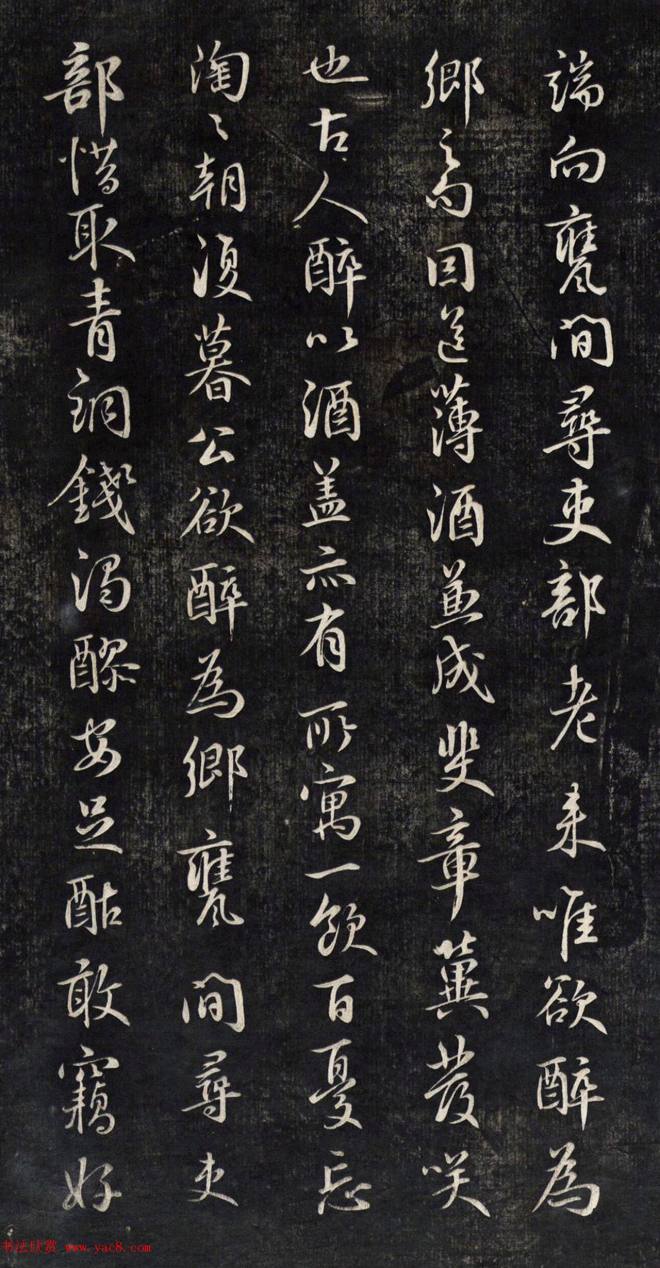 端向甕間尋吏部老来唯欲醉為
卿之句因送薄酒兼成斐章冀發咲
也古人醉以酒盖亦有所寓一飲百憂忘
淘〻朝復暮公欲醉為卿甕間尋吏
部惜取青銅錢濁醪安足酤敢竊好
书法欣赏 www.yac8.com